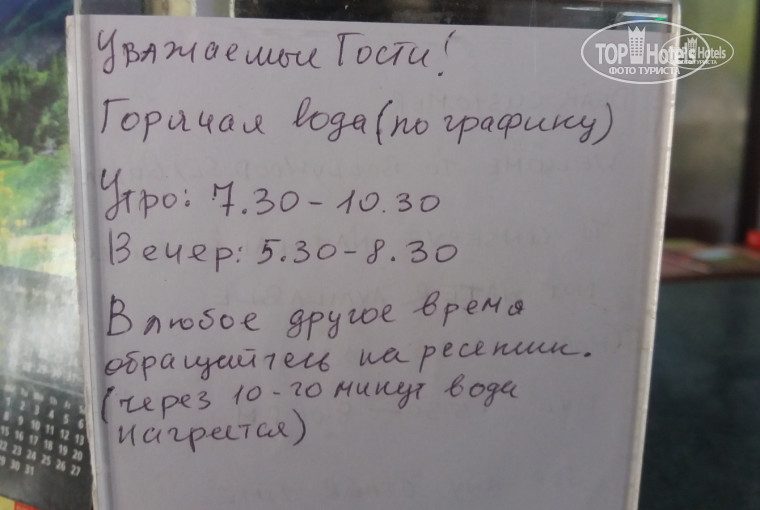 Уважаемые Гости!
TOP Hotels
ФОТО ТУРИСТА
Горячая вода (по графику)
Утро: 7.30-10.30
Вечер: 5.30-8.30
В любое другое время
обращайтесь на ресепшн.
(через 10-20 минут вода
нагреется)